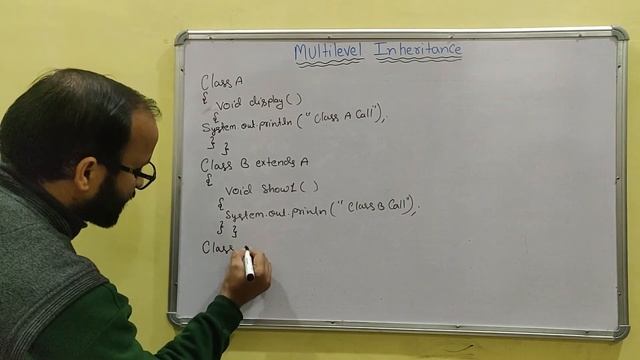 Multilevel Inheritance
Class A
{ Void display()
{
System.out.println("Class A Call");
} }
Class B extends A
{
Void show1()
{
System.out.println("Class B Call");
} }
Class